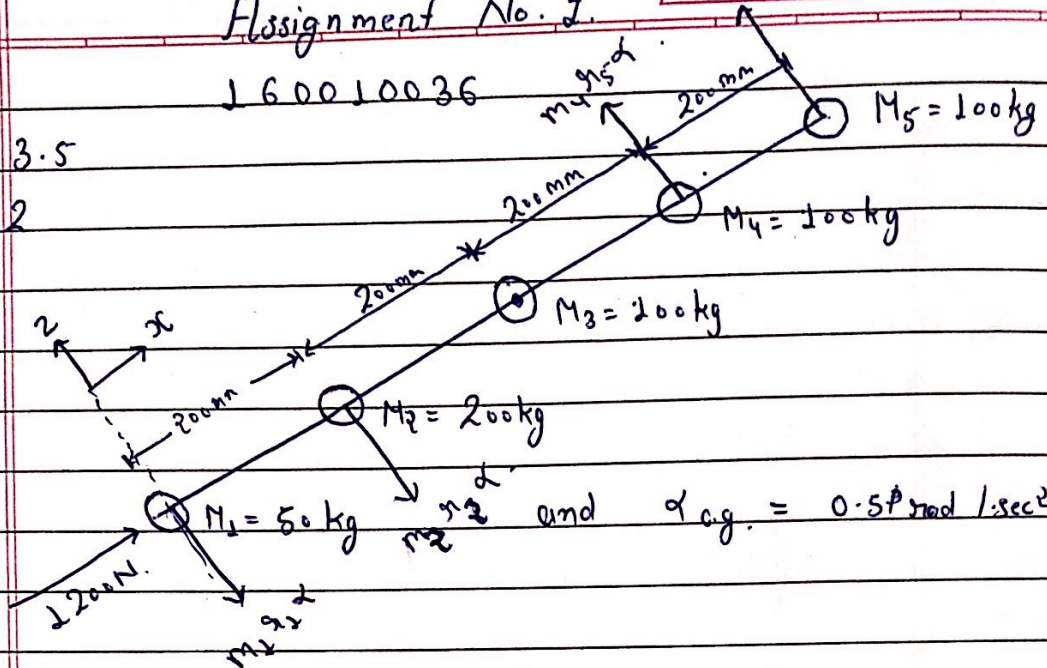 Assignment No. 1.
160010036
3.5
2
200mm
M5 = 100kg
200mm
M4 = 100kg
200mm
M3 = 100kg
z
x
200mm
M2 = 200kg
M1 = 50 kg
and α c.g. = 0.5 rad /sec2
1200N.